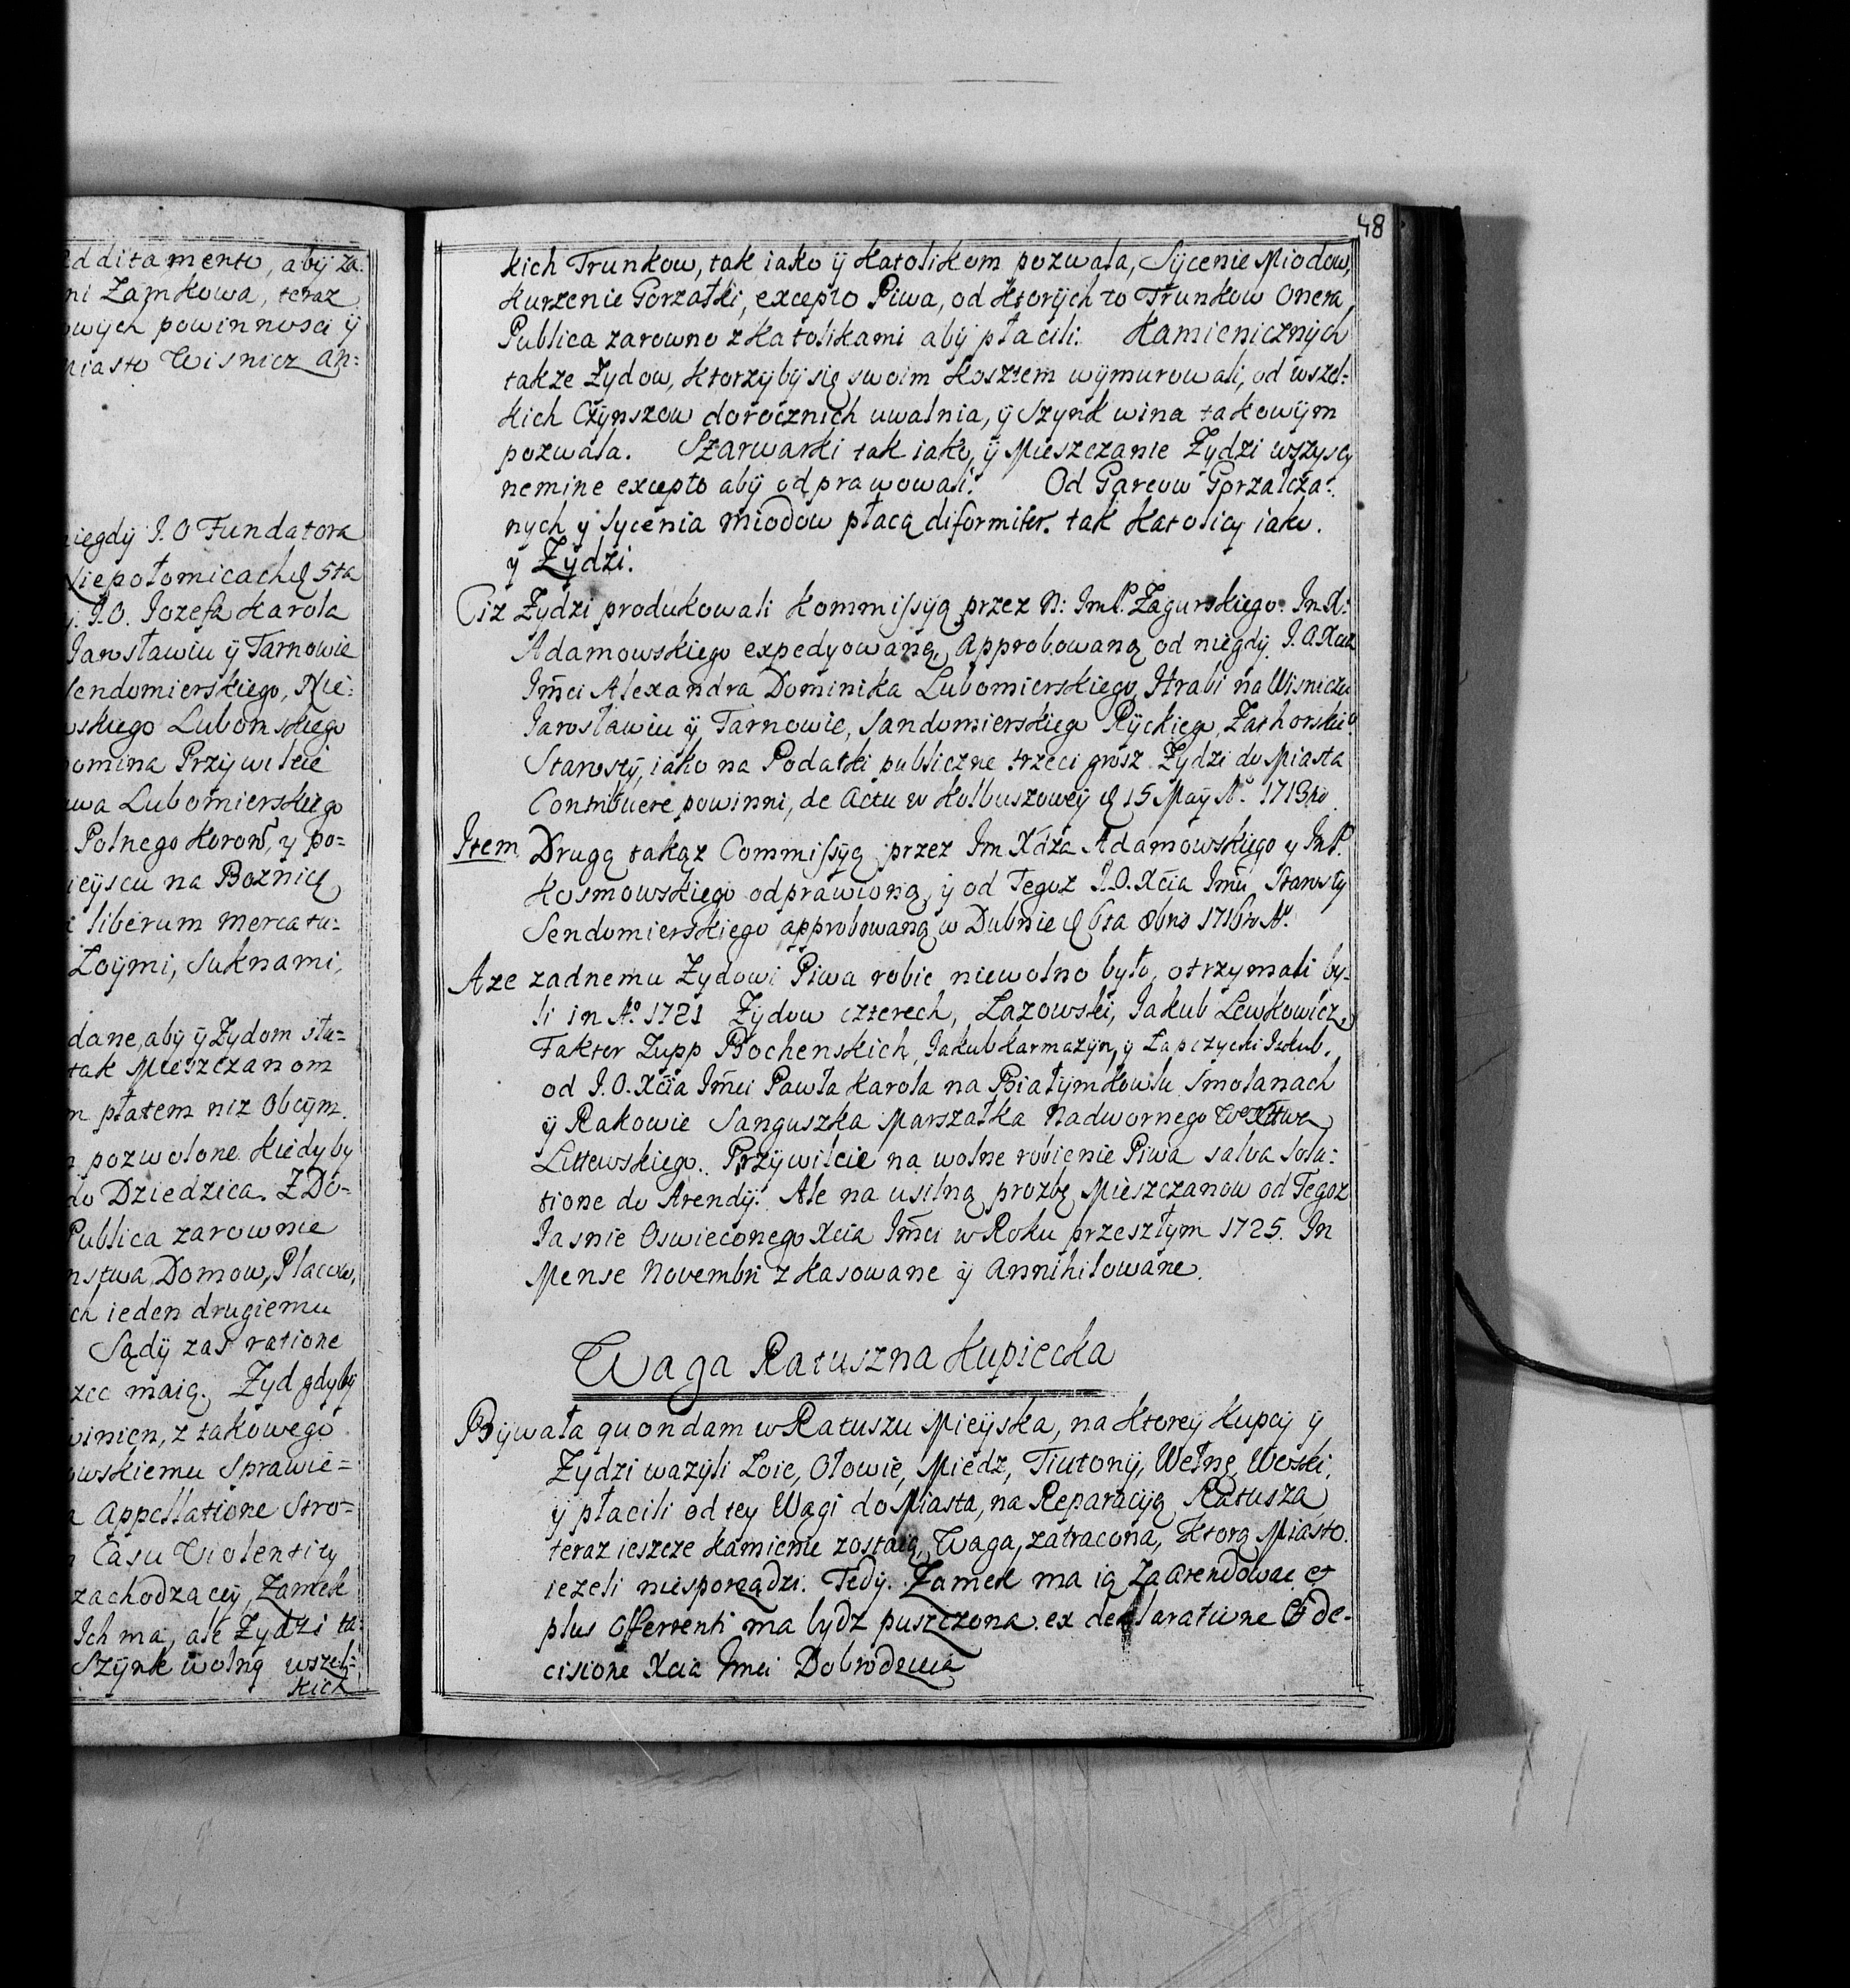 dditamente, abÿ za:
ni Zamkowa, teraz
owÿch powinnosci ÿ
miasto Wisnicz an:
niegdÿ I.O Fundatora
Niepołomicach d 5ta
I.O. Iozefa Karola
Iarosławiu ÿ Tarnowie
Sendomierskiego, Nie:
wskiego Lubomskiego
pomina Przÿwileie
awa Lubomierskiego
Polnego Koroñ, y po=
ieÿscu na Boznicę
liberum mercatu:
Łoÿmi, Suknami,
dane, abÿ ÿ Zydom słu=
tak Mieszczanom
płatem niz Obcÿm.
pozwolone. Kiedyby
do Dziedzica. Z Do-
Publica zarownie
nstwa Domow, Placow,
ch ieden drugiemu
Sądÿ zas ratione
zec maią. Zyd gdyby
winien, z takowego
owskiemu Sprawie=
Appellatione Stro=
Casu Violentiÿ
zachodzaceÿ, Zamek
Ich ma, ale Zydzi ta:
Szÿnk wolną wszel:
kich
48
kich Trunkow, tak iako ÿ Katolikom pozwala, Sÿcenie Miodow,
Kurzenie Gorzałki, excepto Piwa, od Ktorÿch to Trunkow Onera
Publica zarowno z Katolikami abÿ płacili. Kamienicznÿch
takze Zydow, Ktorzÿbÿ się swoim Kosztem wÿmurowali, od wszel:
kich Czÿnszow dorocznich uwalnia, ÿ Szynk wina takowÿm
pozwala. Szarwarki tak iako, ÿ Mieszczanie Zydzi wszyscy
nemine excepto abÿ odprawowali. Od Garcow Gorzalcza:
nych y Sycenia Miodow płacą diformiter. tak Katolicy iako.
y Zÿdzi.
Ciz Zydzi produkowali Kommissÿą przez N: ImP. Zagurskiego. Im X:
Adamowskiego expedyowaną, Approbowaną od niegdÿ I.O. Xcia
Imci Alexandra Dominika Lubomierskiego Hrabi na Wisniczu
Iarosławiu ÿ Tarnowie, Sandomierskieg Rÿckieg, Zathorskieº
Starostÿ, iako na Podatki publiczne trzeci grosz Zydzi do Miasta
Contribuere powinni, de Actu w Kolbuszoweÿ d 15 Maÿ Aº. 1713ho
Item Drugą takąz Commissÿą przez Im Xdza Adamowskiego y ImP.
Kosmowskiego odprawioną, ÿ od Tegoz I.O. Xcia Imci Starosty
Sendomierskiego approbowaną w Dubnie d 6ta 8bris 1716to Aº.
A ze zadnemu Zydowi Piwa robic niewolno było, otrzymali by-
li in Aº. 1721 Zydow czterech, Lazowski, Iakub Lewkowicz
Faktor Zupp Bochenskich, Iakub Karmazyn, y Łapczycki Iakub,
od I.O. Xcia Imci Pawła Karola na Białÿmkowlu Smolanach
ÿ Rakowie Sanguszka Marszałka Nadwornego W. Xttwa
Littewskiego. Przÿwileie na wolne robienie Piwa salva Solu:
tione do Arendÿ. Ale na usilną prozbę Mieszczanow od Tegoz
Iasnie Oswieconego Xcia Imci w Roku przeszłym 1725. In
Mense Novembri zkasowane ÿ Annihilowane.
Waga Ratuszna Kupiecka
Bÿwała quondam w Ratuszu Mieÿska, na Ktoreÿ Kupcÿ ÿ
Zydzi wazÿli Łoie, Ołowie, Miedz, Tiutonÿ, Wełnę, Woski,
ÿ płacili od tey Wagi do Miasta, na Reparacÿą Ratusza
teraz ieszcze Kamienie zostaią, Waga, zatracona, Ktorą Miasto.
iezeli niesporządzi. Tedÿ. Zamek ma ią Zaarendowac et
plus Offerenti ma bydz puszczona. ex declaratione et de-
cisione Xcia Imci Dobrodzieia